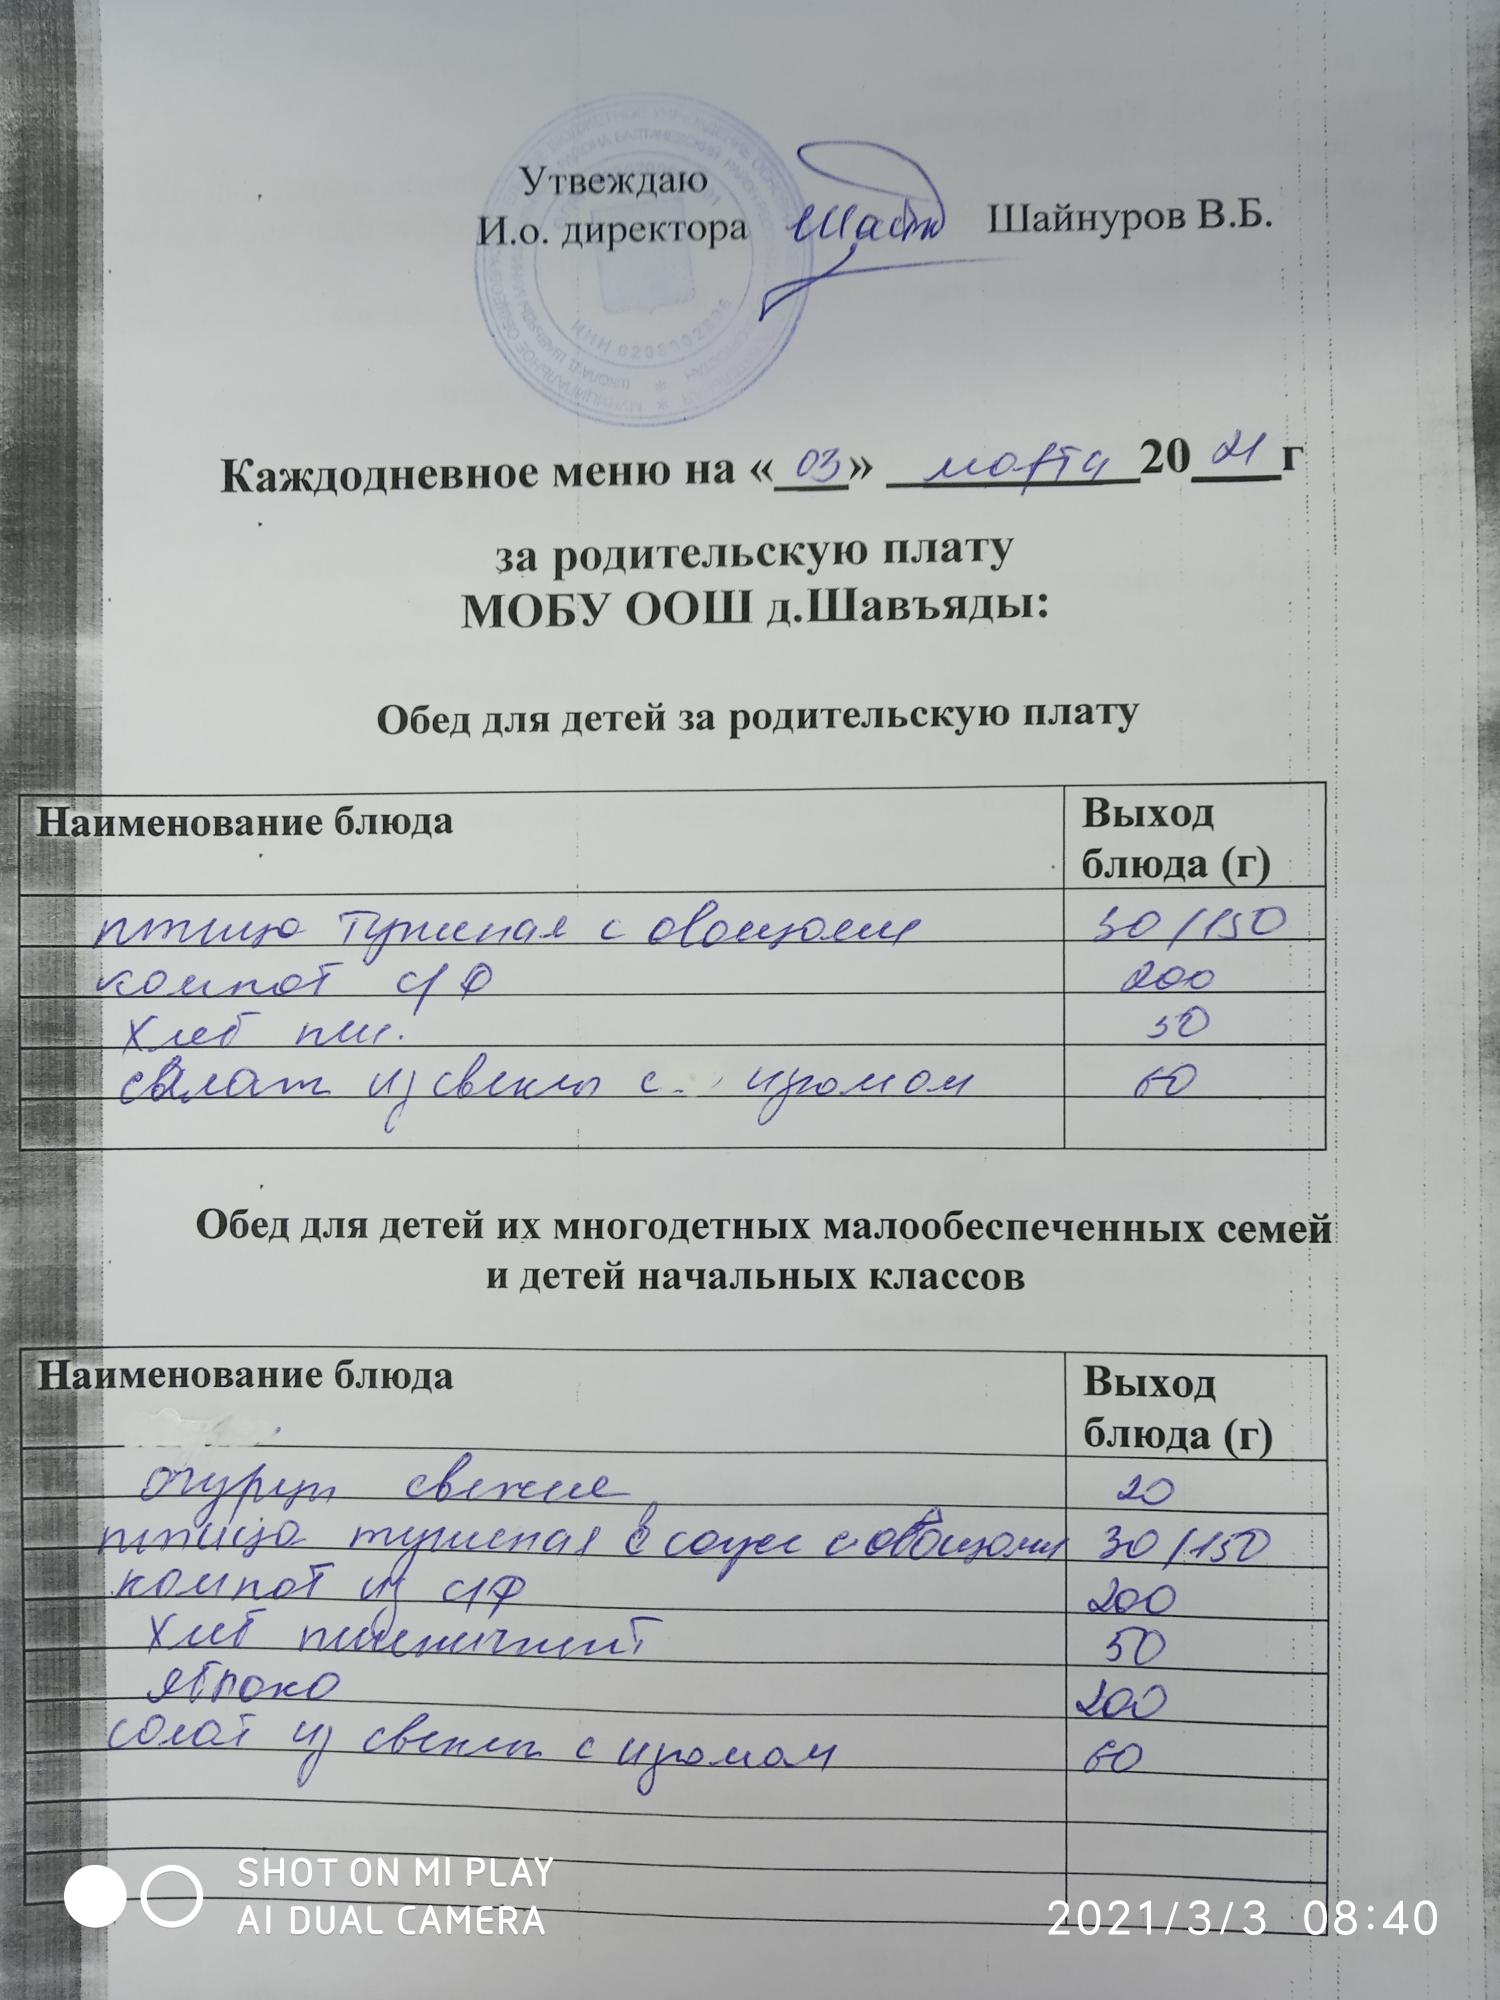 Утвеждаю
И.о. директора Шайнуров В.Б.
ИНН
Каждодневное меню на «03» марта 2021 г
за родительскую плату
МОБУ ООШ д.Шавъяды:
Обед для детей за родительскую плату
Наименование блюда Выход блюда (г)
птица тушеная с овощами 30/150
компот с/ф 200
хлеб пш. 50
салат из свеклы с изюмом 60
Обед для детей их многодетных малообеспеченных семей
и детей начальных классов
Наименование блюда Выход блюда (г)
огурец свежие 20
птица тушеная в соусе с овощами 30/150
компот из с/ф 200
хлеб пшеничный 50
яблоко 200
салат из свеклы с изюмом 60
SHOT ON MI PLAY
AI DUAL CAMERA
2021/3/3 08:40